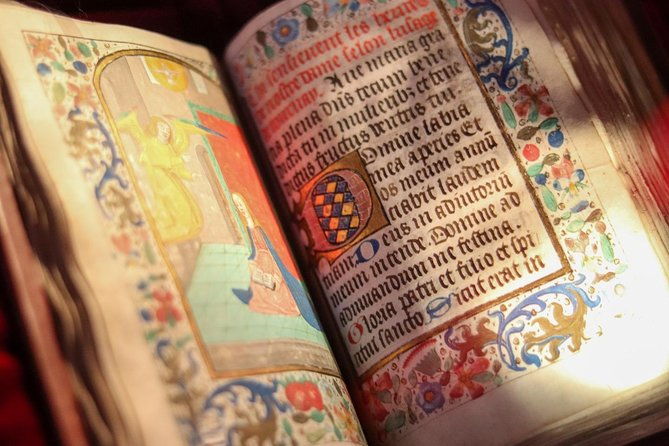 sensieuent les heures
nostre dame selon lusage
Aue maria gra
a plena dñs tecum bene
icta tu in mulieribz et bñe
dictus fructus uentris tui
Domine labia
mea aperies Et
os meum annũ
ciabit laudem
tuam Deus in adiutoriũ
meum intende. Domine ad
adiuuandum me festina.
Gloria patri et filio et spi
ritui sancto Sicut erat in